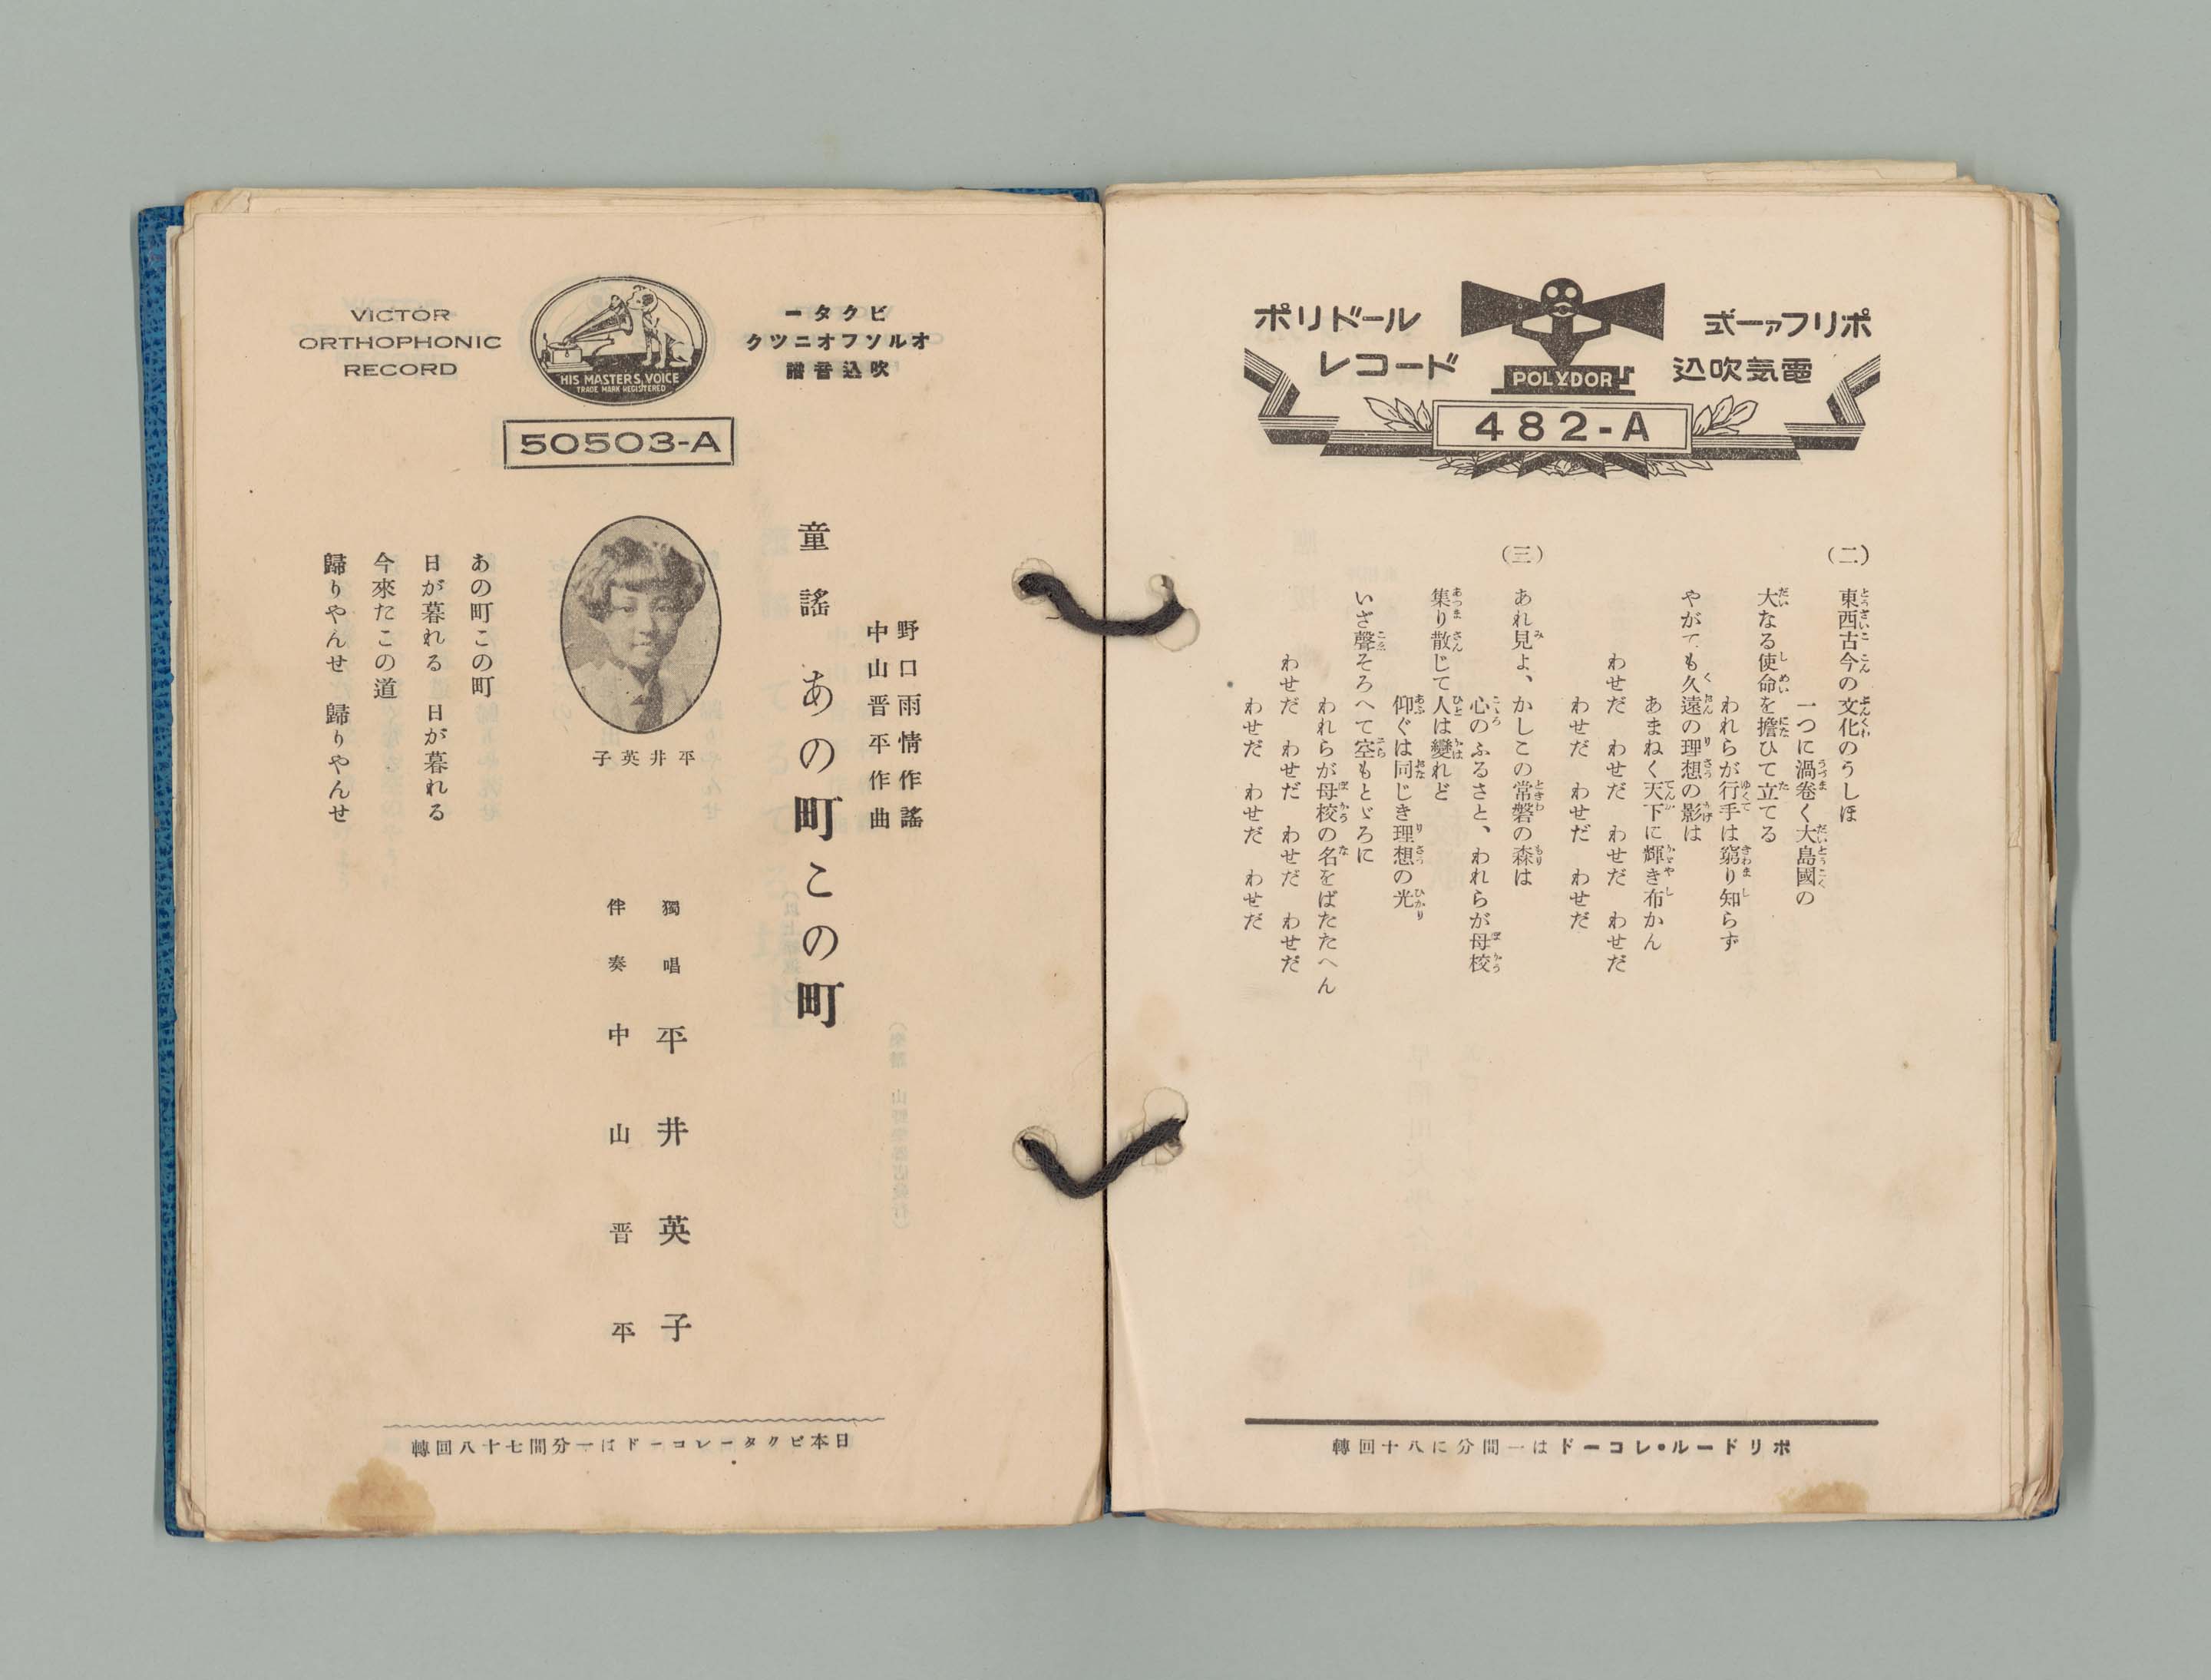 ポリドール
レコード
ポリファー式
電気吹込
POLYDOR
482-A
（二）
東西古今の文化のうしほ
一つに渦巻く大島國の
大なる使命を擔ひて立てる
われらが行手は窮り知らず
やがても久遠の理想の影は
あまねく天下に輝き布かん
わせだ　わせだ　わせだ　わせだ
わせだ　わせだ　わせだ
（三）
あれ見よ、かしこの常磐の森は
心のふるさと、われらが母校
集り散じて人は變れど
仰ぐは同じき理想の光
いざ聲そろへて空もとゞろに
われらが母校の名をばたたへん
わせだ　わせだ　わせだ　わせだ
わせだ　わせだ　わせだ
ポリドール・レコードは一間分に八十回轉
VICTOR
ORTHOPHONIC
RECORD
HIS MASTERS VOICE
TRADE MARK REGISTERED
ビクター
オルソフオニツク
吹込音譜
50503-A
野口雨情作謠
中山晋平作曲
童謠　あの町この町
平井英子
獨唱　平井英子
伴奏　中山晋平
あの町この町
日が暮れる　日が暮れる
今來たこの道
歸りやんせ　歸りやんせ
日本ビクターレコードは一分間七十八回轉